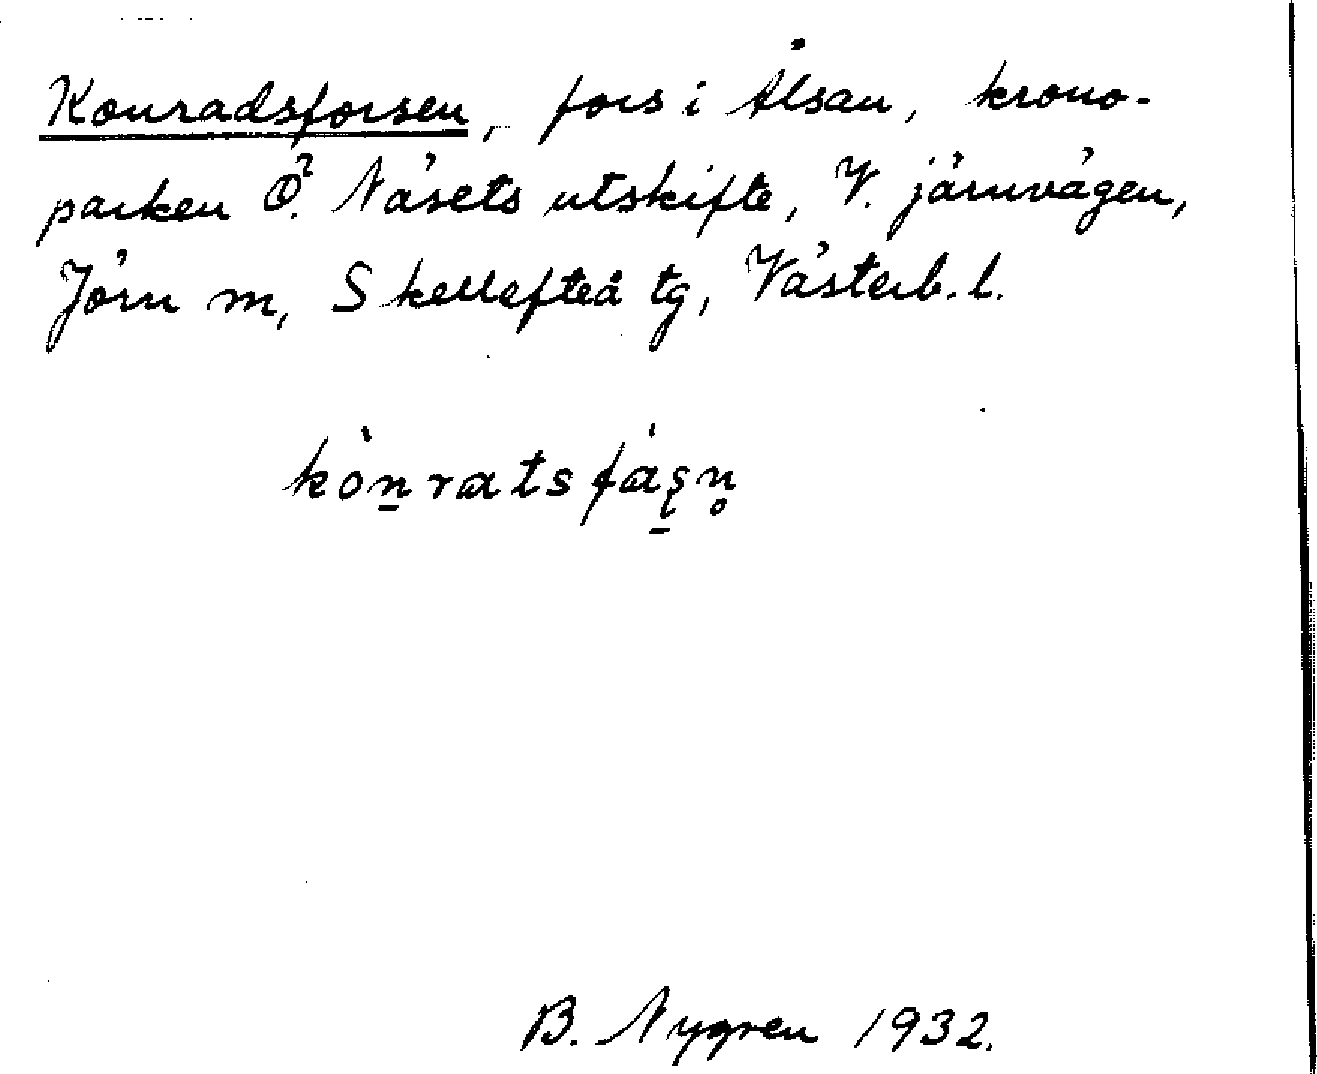 Konradsforsen, fors i Ålsån, krono-
parken Ö. Näsets utskifte, V. järnvägen,
Jörn sn, Skellefteå tg, Västerb. l.
kònratsfàʂn̥
B. Nygren 1932.